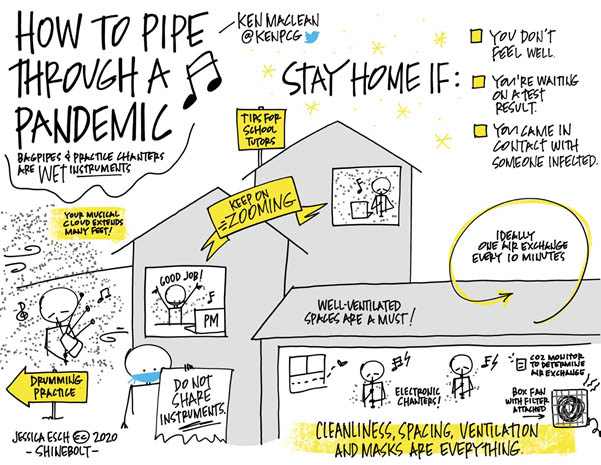 HOW TO PIPE
THROUGH A
PANDEMIC
KEN MACLEAN
@KENPCG
BAGPIPES & PRACTICE CHANTERS
ARE WET INSTRUMENTS
STAY HOME IF:
YOU DON'T
FEEL WELL.
YOU'RE WAITING
ON A TEST
RESULT.
YOU CAME IN
CONTACT WITH
SOMEONE INFECTED.
TIPS FOR
SCHOOL
TUTORS
KEEP ON
ZOOMING
YOUR MUSICAL
CLOUD EXTENDS
MANY FEET!
GOOD JOB!
PM
IDEALLY
ONE AIR EXCHANGE
EVERY 10 MINUTES
WELL-VENTILATED
SPACES ARE A MUST!
DRUMMING
PRACTICE
DO NOT
SHARE
INSTRUMENTS.
ELECTRONIC
CHANTERS!
CO2 MONITOR
TO DETERMINE
AIR EXCHANGE
BOX FAN
WITH FILTER
ATTACHED
JESSICA ESCH cc 2020
- SHINEBOLT -
CLEANLINESS, SPACING, VENTILATION
AND MASKS ARE EVERYTHING.